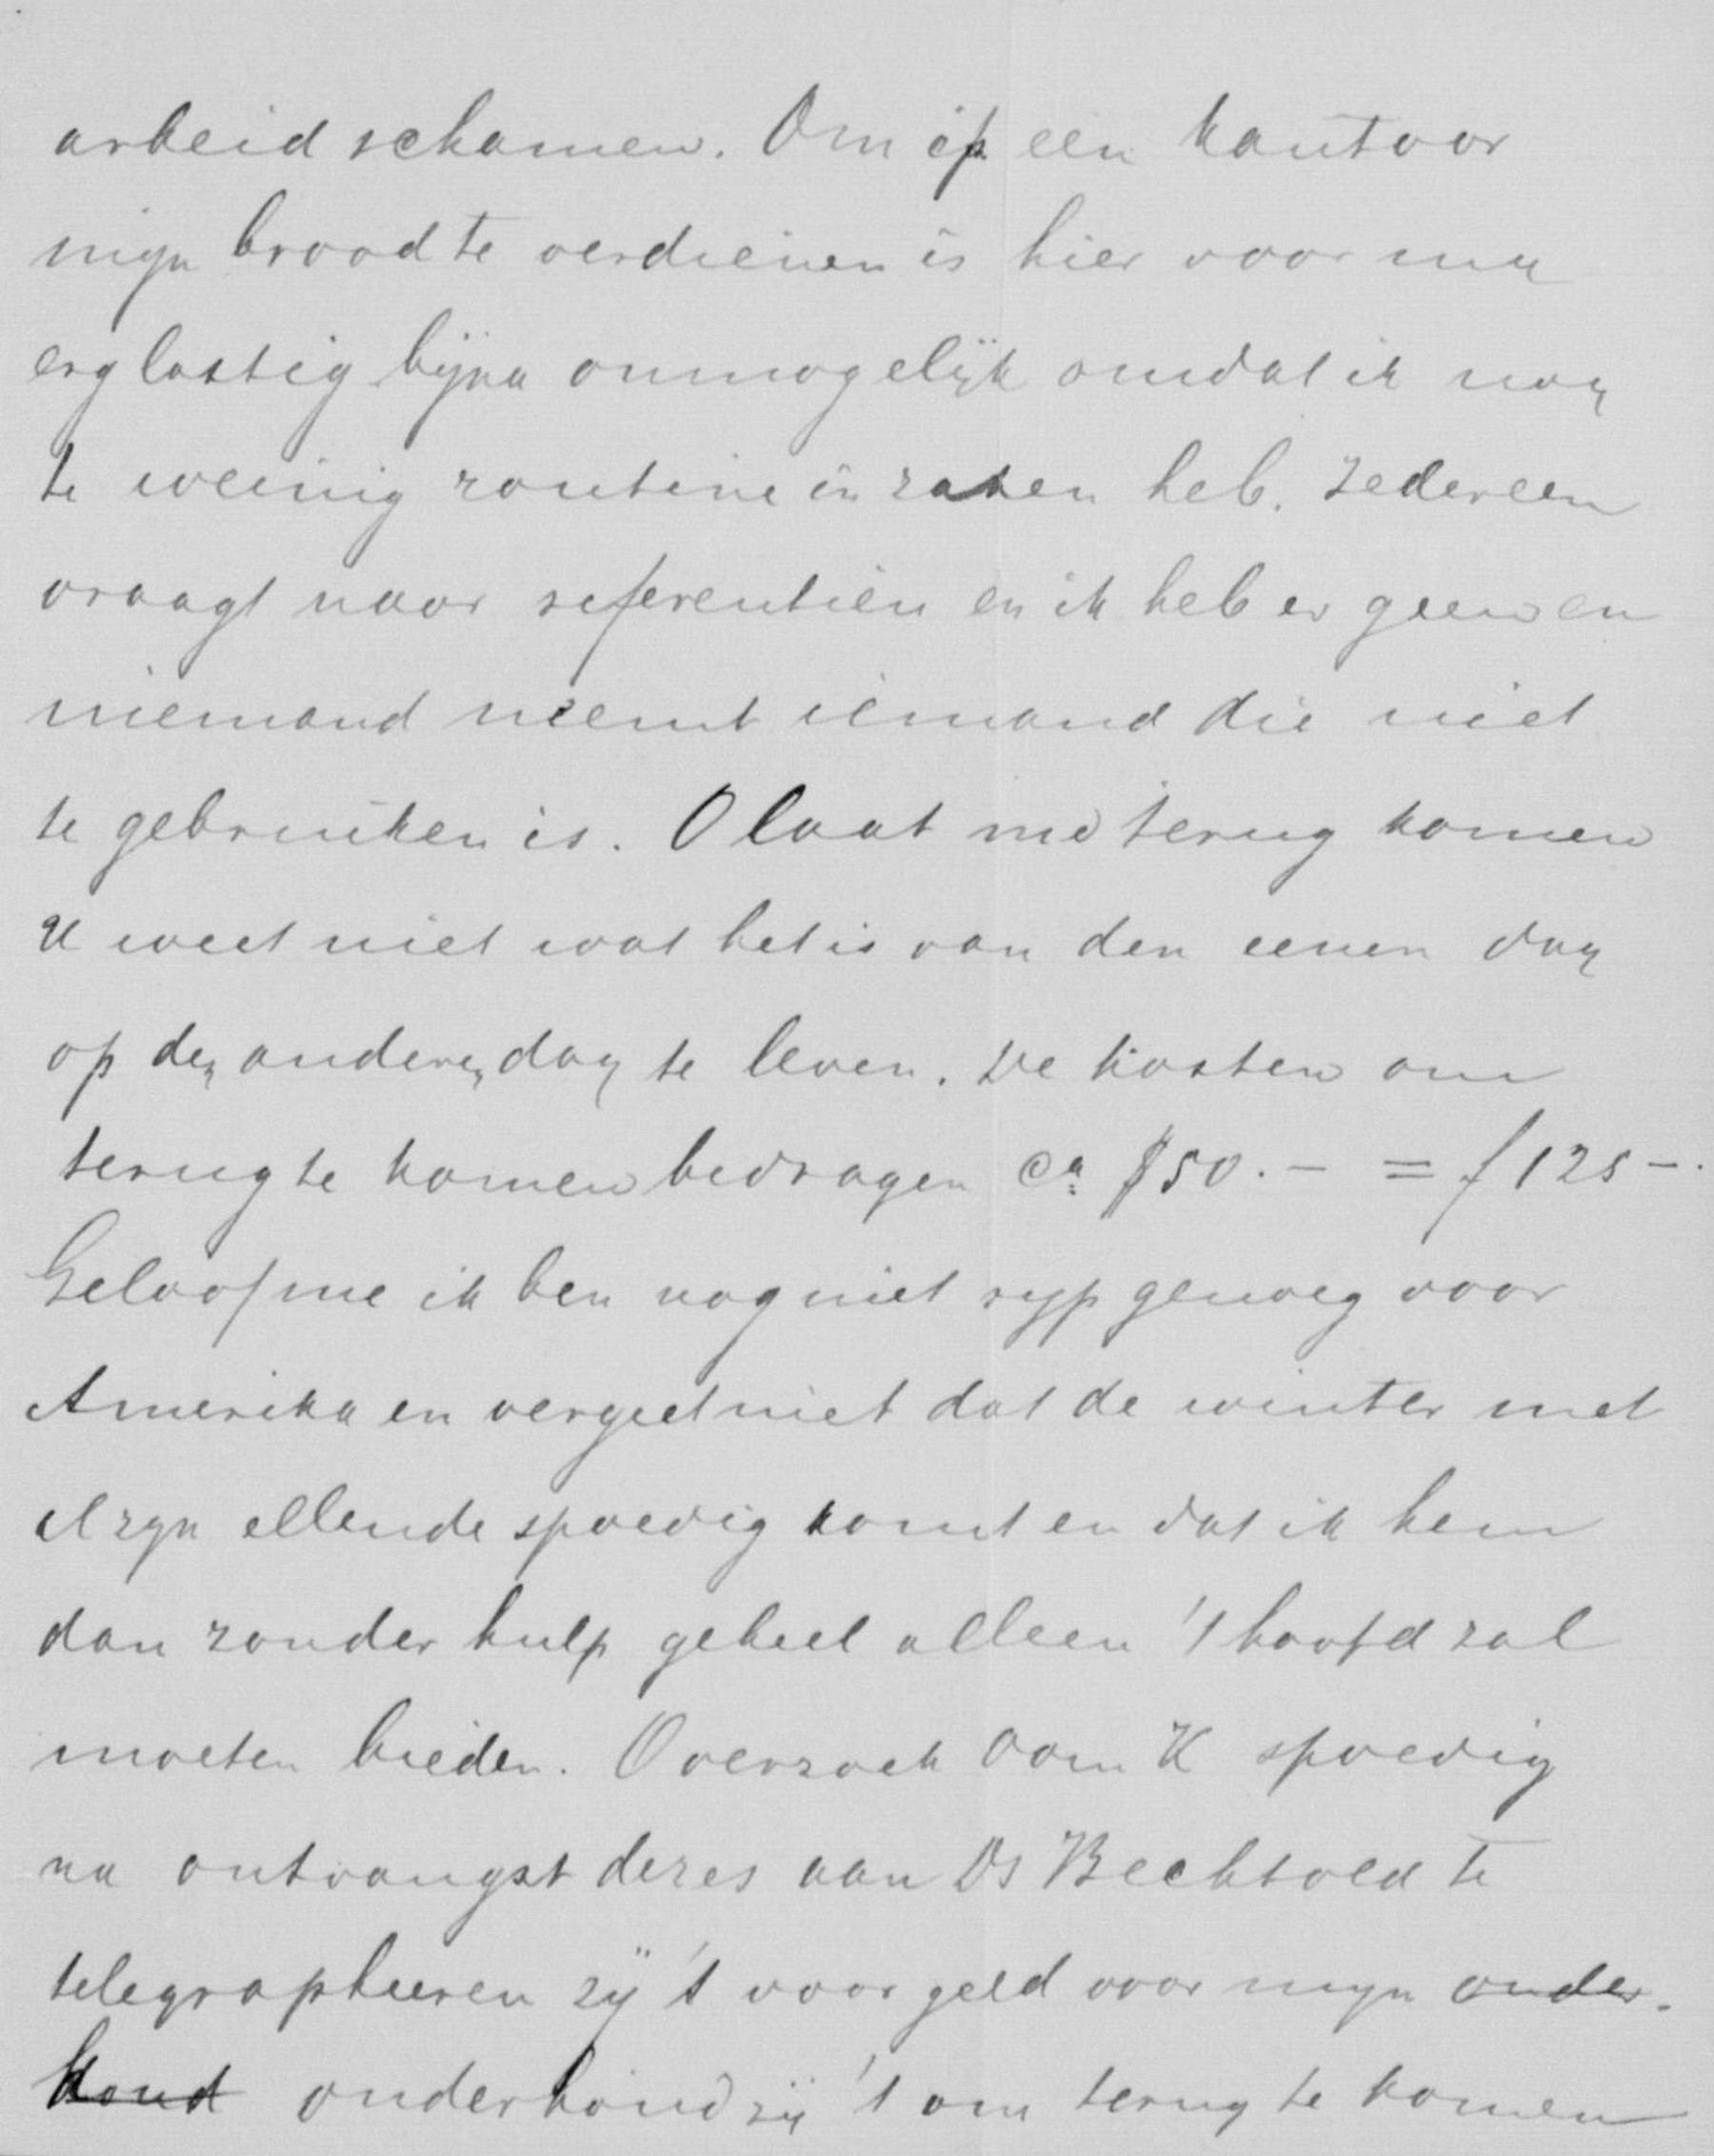 arbeid schamen. Om op een kantoor
mijn brood te verdienen is hier voor mij
erg lastig bijna onmogelijk omdat ik nog
te weinig routine in zaken heb. Iedereen
vraagt naar referentien en ik heb er geen en
niemand neemt iemand die niet
te gebruiken is. O laat me terug komen
U weet niet wat het is van den eenen dag
op den anderen dag te leven. De kosten om
terug te komen bedragen ca $50.- = f 125-.
Geloof me ik ben nog niet ryp genoeg voor
Amerika en vergeet niet dat de winter met
al zyn ellende spoedig komt en dat ik hem
dan zonder hulp geheel alleen 't hoofd zal
moeten bieden. Verzoek Oom K spoedig
na ontvangst dezes aan Ds Bechtold te
telegrapheeren zij 't voor geld voor myn onder-
houd onderhoud zij 't om terug te komen